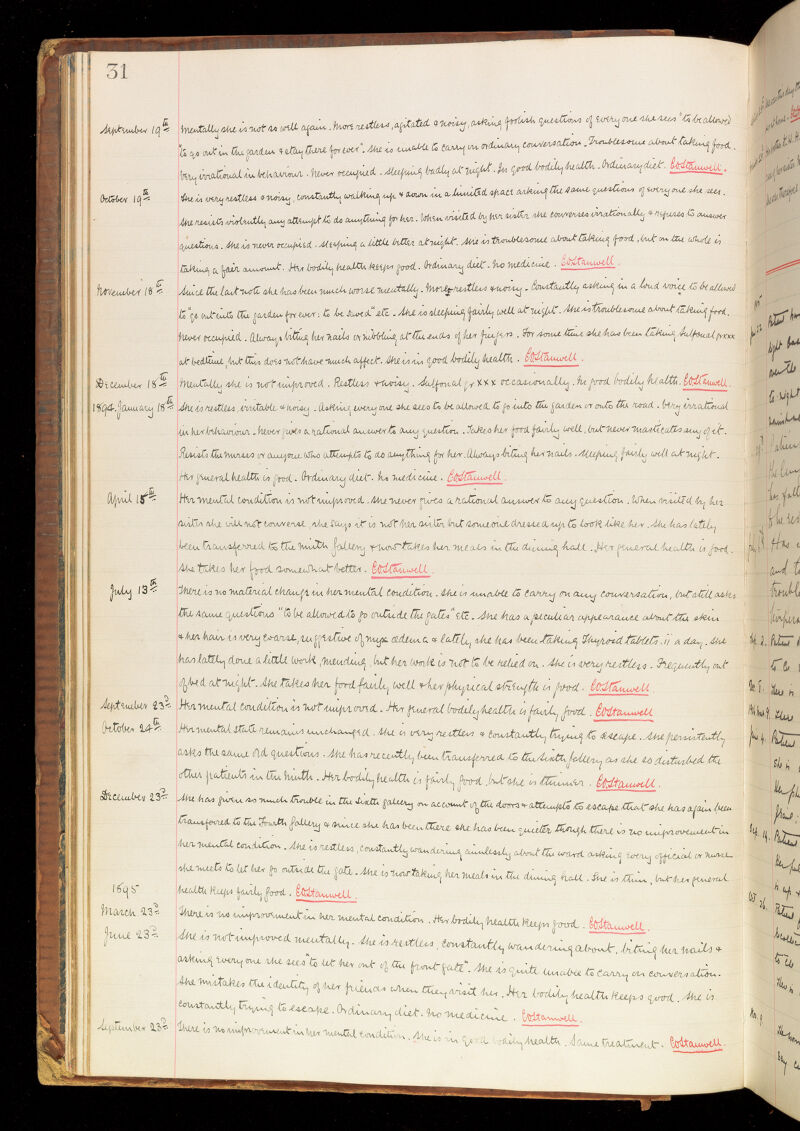 31
September 19th Mentally she is not so well again. More restless, agitated & noisy, asking foolish questions of everyone she sees "to be allowed
to go out in the garden & stay there for ever". She is unable to carry on ordinary conversation. Troublesome about taking food.
Very irrational in behaviour. Never occupied. Sleeping badly at night. In good bodily health. Ordinary diet. COStanwell.
October 19th She is very restless & noisy, constantly walking up & down in a limited space asking the same questions of everyone she sees.
She resists violently any attempt to do anything for her. When visited by her sister she converses irrationally & refuses to answer
questions. She is never occupied. Sleeping a little better at night. She is troublesome about taking food, but on the whole is
taking a fair amount. Her bodily health keeps good. Ordinary diet. No medicine. COStanwell.
November 18th Since the last note she has been much worse mentally. More restless & noisy. Constantly asking in a loud voice to be allowed
to "go out into the garden for ever: to be saved" etc. She is sleeping fairly well at night. She is troublesome about taking food.
Never occupied. Always biting her nails or nibbling at the ends of her fingers. For some time she has been taking Sulfonal gr xxx
at bedtime, but this does not have much affect. She is in good bodily health. COStanwell.
December 18th Mentally she is not improved. Restless & noisy. Sulfonal gr xxx occasionally. In good bodily health. COStanwell.
1894. January 18th She is restless, irritable & noisy. Asking everyone she sees to be allowed to go into the garden or onto the road. Very irrational
in her behaviour. Never gives a rational answer to any question. Takes her food fairly well, but never masticates any of it.
Resists the nurses or anyone who attempts to do anything for her. Always biting her nails. Sleeping fairly well at night.
Her general health is good. Ordinary diet. No medicine. COStanwell.
April 15th Her mental condition is not improved. She never gives a rational answer to any question. When visited by her
sister she will not converse, she says it is not her sister but someone dressed up to look like her. She has lately
been transferred to the ninth gallery & now takes her meals in the dining hall. Her general health is good.
She takes her food somewhat better. COStanwell.
July 13th There is no material change in her mental condition. She is unable to carry on any conversation, but still asks
the same questions "to be allowed to go outside the gates" etc. She has a peculiar appearance about the skin
& her hair is very coarse, suggestive of myxoedema & lately she has been taking Thyroid tablets. ii a day. She
has lately done a little work, mending, but her work is not to be relied on. She is very restless. Frequently out
of bed at night. She takes her food fairly well & her physical strength is good. COStanwell.
September 23rd Her mental condition is not improved. Her general bodily health is fairly good. COStanwell
October 24th Her mental state remains unchanged. She is very restless & constantly trying to escape. She persistently
asks the same old questions. She has recently been transferred to the Sixth gallery as she so disturbed the
other patients in the ninth. Her bodily health is fairly good, but she is thinner. COStanwell.
December 23rd She has given so much trouble in the Sixth gallery on account of the doors & attempts to escape that she has again been
transferred to the Fourth gallery & since she has been there she has been quieter though there is no improvement in
her mental condition. She is restless, constantly wandering aimlessly about the ward asking every official or nurse
she meets to let her go outside the gate. She is now taking her meals in the dining hall. She is thin, but her general
health keeps fairly good. COStanwell.
1895
March 23rd There is no improvement in her mental condition. Her bodily health keeps good. COStanwell.
June 23rd She is not improved mentally. She is restless, constantly wandering about, biting her nails &
asking everyone she sees "to let her out of the front gate". She is quite unable to carry on conversation.
She mistakes the identity of her friends when they visit her. Her bodily health keeps good. She is
constantly trying to escape. Ordinary diet. No medicine. COStanwell.
September 23rd There is no improvement in her mental condition. She is in good bodily health. Same treatment. COStanwell.